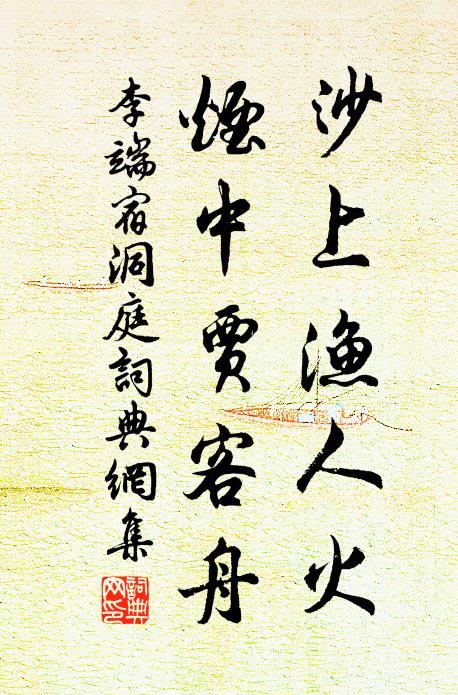 沙上漁人火
煙中賈客舟
李端宿洞庭詞典網集
詞典网印